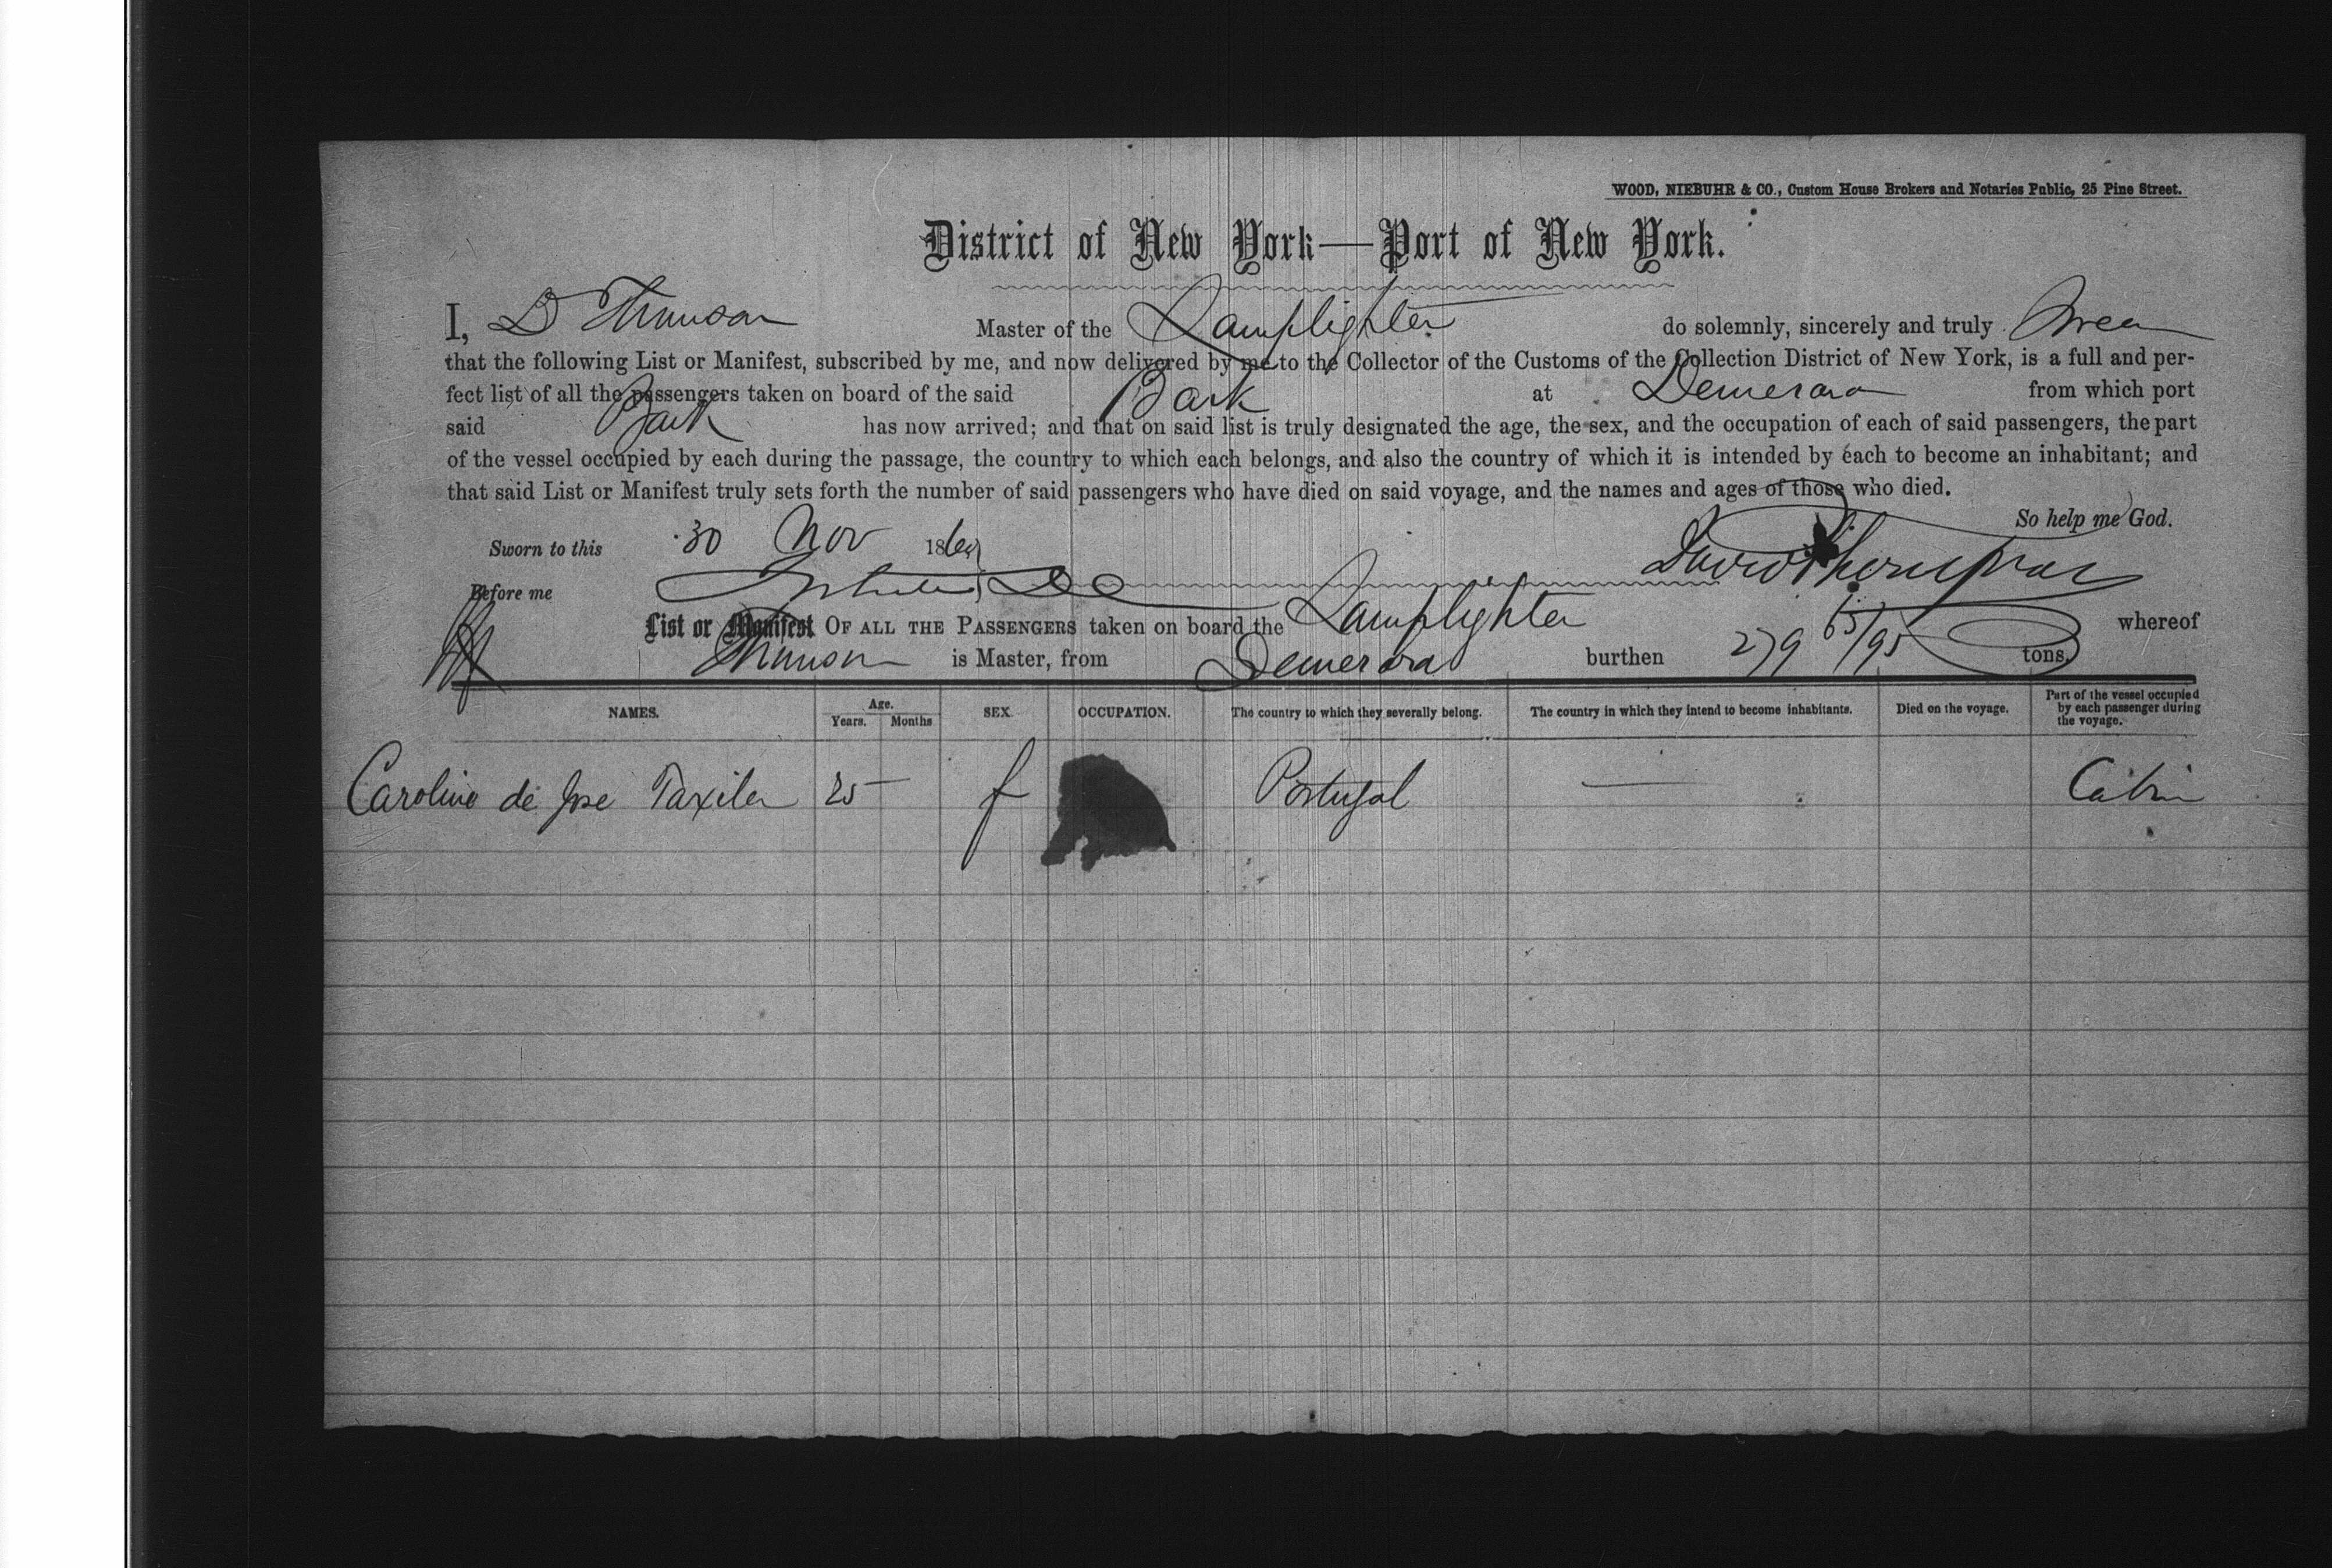 WOOD, NIEBUHR & CO., Custom House Brokers and Notaries Public, 25 Pine Street.
District of New York—Port of New York.
I, D Thomson Master of the Lamplighter do solemnly, sincerely and truly Swear
that the following List or Manifest, subscribed by me, and now delivered by me to the Collector of the Customs of the Collection District of New York, is a full and per-
fect list of all the passengers taken on board of the said Bark at Demerara from which port
said Bark has now arrived; and that on said list is truly designated the age, the sex, and the occupation of each of said passengers, the part
of the vessel occupied by each during the passage, the country to which each belongs, and also the country of which it is intended by each to become an inhabitant; and
that said List or Manifest truly sets forth the number of said passengers who have died on said voyage, and the names and ages of those who died.
So help me God.
Sworn to this 30 Nov 186
David Thompson
Before me
List or Manifest OF ALL THE PASSENGERS taken on board the Lamplighter whereof
Thomson is Master, from Demerara burthen 279 65/95 tons.
NAMES. Age. Years. Months SEX. OCCUPATION. The country to which they severally belong. The country in which they intend to become inhabitants. Died on the voyage. Part of the vessel occupied by each passenger during the voyage.
Caroline de Jose Taxiler 25 — f Portugal — Cabin